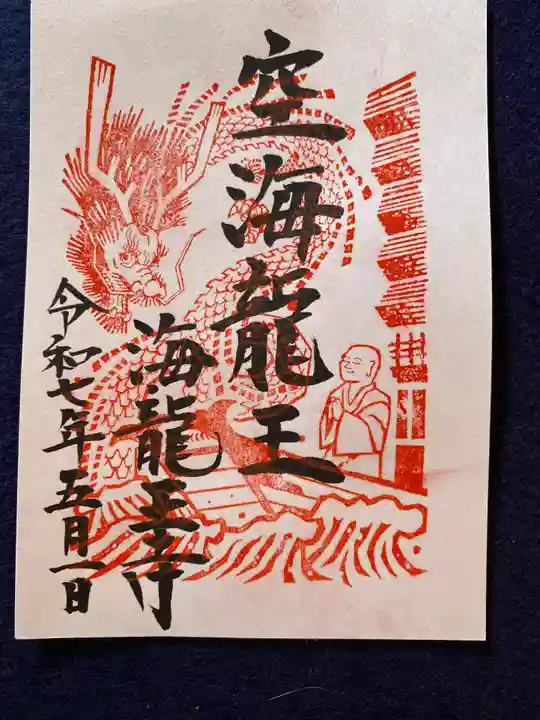 空海龍王
海龍王寺
令和七年五月一日